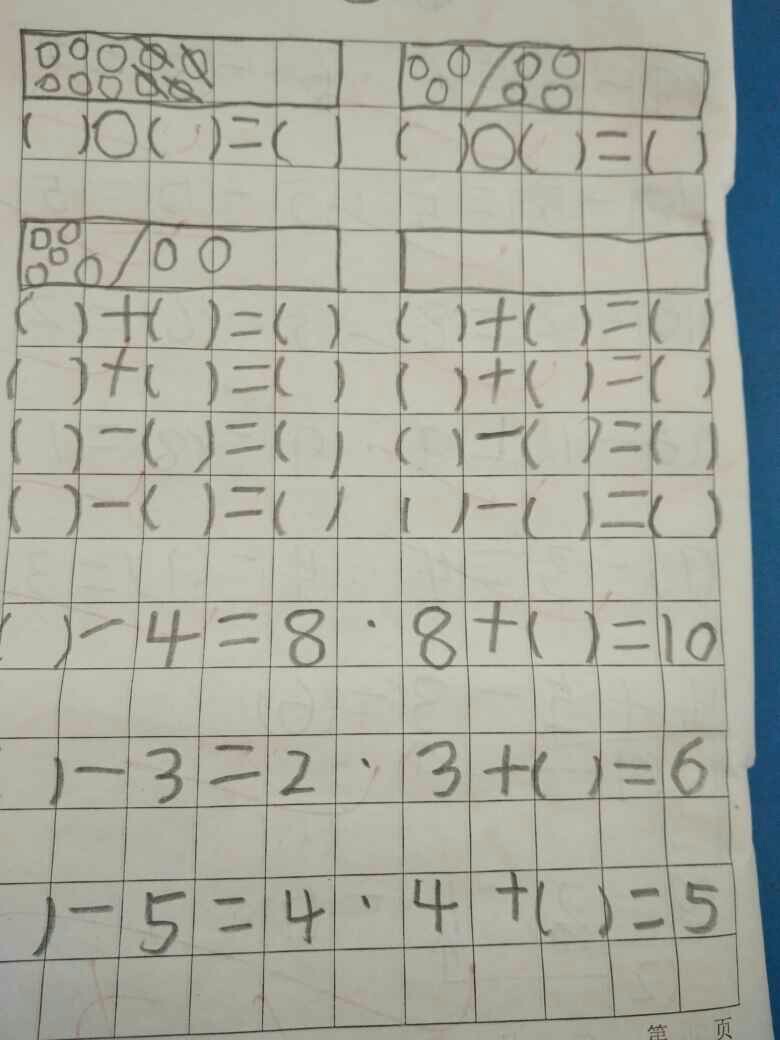 ( )○( )=( ) ( )○( )=( )
( )+( )=( ) ( )+( )=( )
( )+( )=( ) ( )+( )=( )
( )-( )=( ) ( )-( )=( )
( )-( )=( ) ( )-( )=( )
( )-4=8 · 8+( )=10
)-3=2 · 3+( )=6
)-5=4 · 4+( )=5
第 页